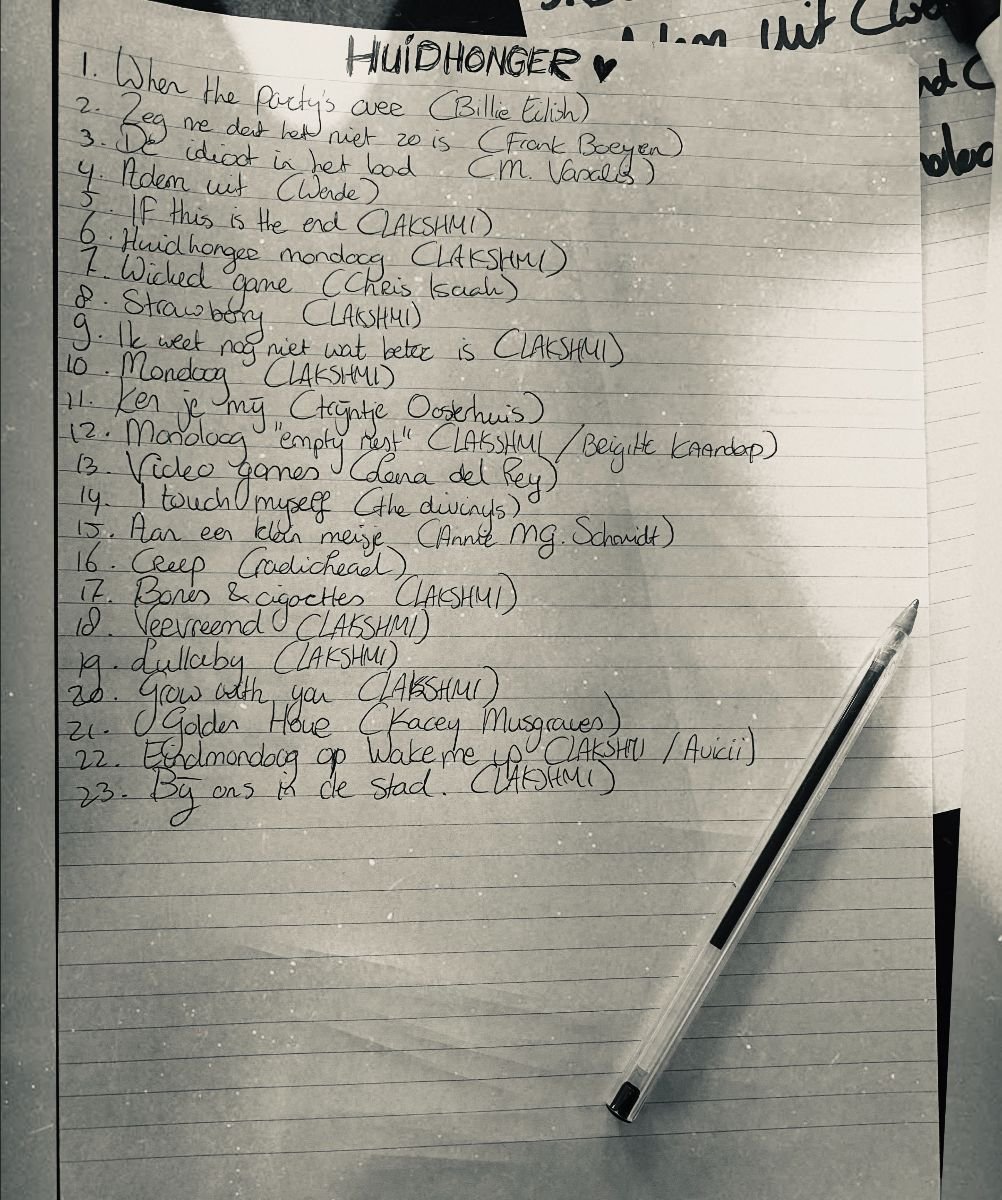 Adem Uit (We
nd C
HUIDHONGER ♥
1. When the party's over (Billie Eilish)
2. Zeg me dat het niet zo is (Frank Boeyen)
3. De idioot in het bad (M. Vasalis)
4. Adem uit (Wende)
5. If this is the end (LAKSHMI)
6. Huidhonger monoloog (LAKSHMI)
7. Wicked game (Chris Isaak)
8. Strawberry (LAKSHMI)
9. Ik weet nog niet wat beter is (LAKSHMI)
10. Monoloog (LAKSHMI)
11. Ken je mij (trijntje Oosterhuis)
12. Monoloog "empty nest" (LAKSHMI / Brigitte Kaandorp)
13. Video games (Lana del Rey)
14. I touch myself (the divinyls)
15. Aan een klein meisje (Annie MG. Schmidt)
16. Creep (radiohead)
17. Bones & cigarettes (LAKSHMI)
18. Veevreemd (LAKSHMI)
19. Lullaby (LAKSHMI)
20. Grow with you (LAKSHMI)
21. Golden Hour (Kacey Musgraves)
22. Eindmonoloog op Wake me up (LAKSHMI / Avicii)
23. Bij ons in de stad. (LAKSHMI)